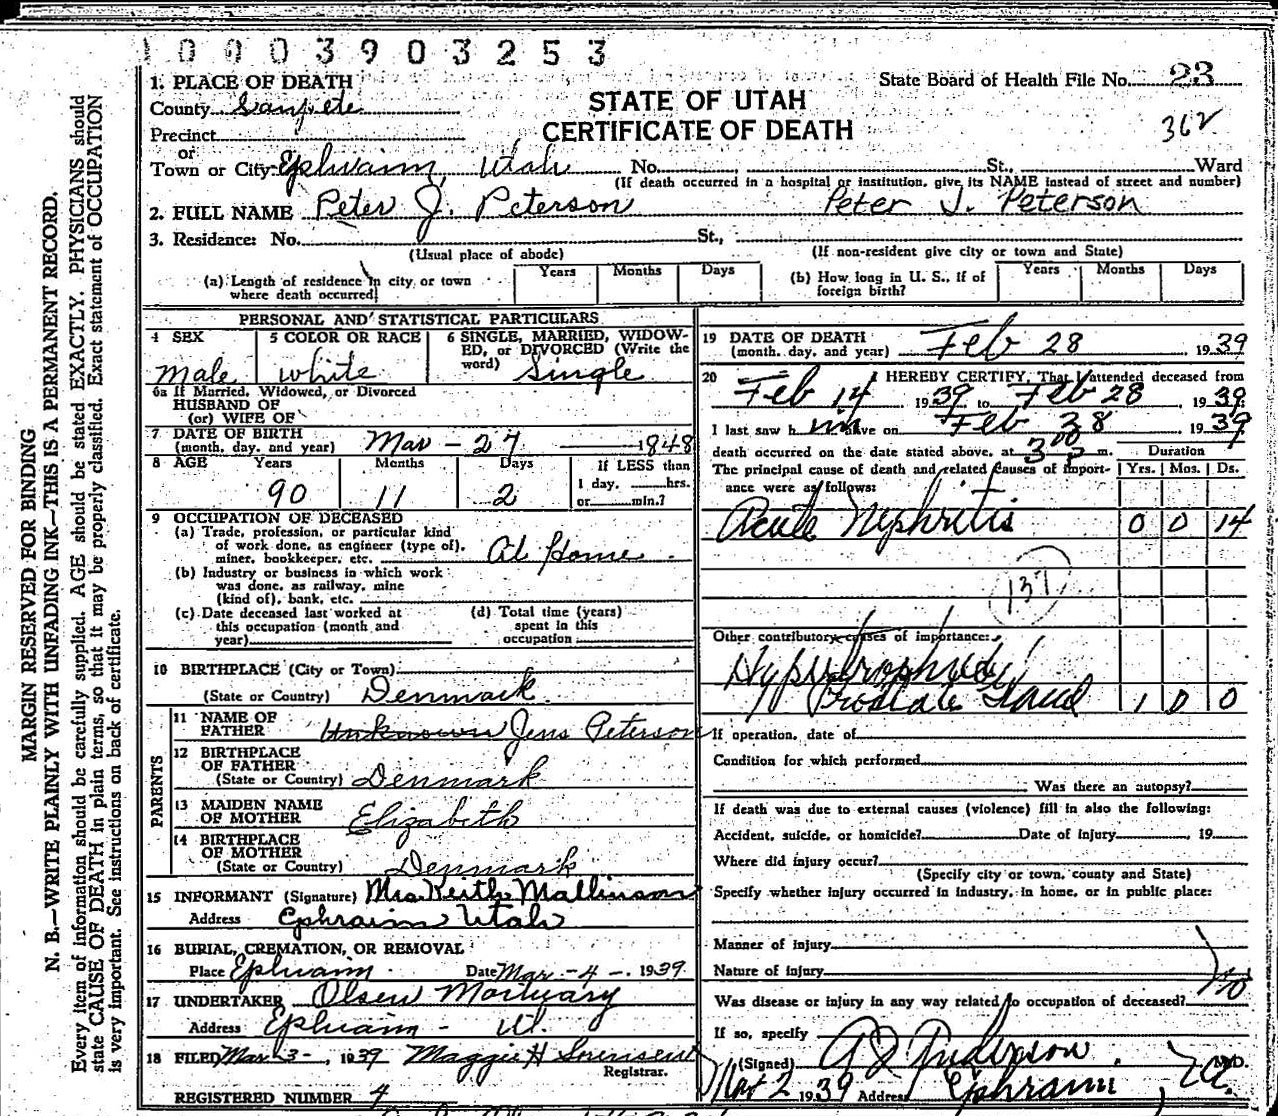 1000390 3253
1. PLACE OF DEATH
State Board of Health File No. 23
County Sanpete
STATE OF UTAH
CERTIFICATE OF DEATH
362
Precinct
or
Town or City Ephraim, Utah No. St., Ward
(If death occurred in a hospital or institution, give its NAME instead of street and number)
2. FULL NAME Peter J. Peterson Peter J. Peterson
3. Residence: No. St.,
(Usual place of abode) (If non-resident give city or town and State)
(a) Length of residence in city or town where death occurred Years Months Days
(b) How long in U. S., if of foreign birth? Years Months Days
PERSONAL AND STATISTICAL PARTICULARS
4 SEX
Male
5 COLOR OR RACE
White
6 SINGLE, MARRIED, WIDOW-
ED, or DIVORCED (Write the
word) Single
6a If Married, Widowed, or Divorced
HUSBAND OF
(or) WIFE OF
7 DATE OF BIRTH
(month, day, and year) Mar - 27 1848
8 AGE Years Months Days If LESS than
90 11 2 1 day, hrs.
or min.?
9 OCCUPATION OF DECEASED
(a) Trade, profession, or particular kind
of work done, as engineer (type of),
miner, bookkeeper, etc. At Home
(b) Industry or business in which work
was done, as railway, mine
(kind of), bank, etc.
(c) Date deceased last worked at
this occupation (month and
year)
(d) Total time (years)
spent in this
occupation
10 BIRTHPLACE (City or Town)
(State or Country) Denmark
PARENTS
11 NAME OF
FATHER Unknown Jens Peterson
12 BIRTHPLACE
OF FATHER
(State or Country) Denmark
13 MAIDEN NAME
OF MOTHER Elizabeth
14 BIRTHPLACE
OF MOTHER
(State or Country) Denmark
15 INFORMANT (Signature) Mrs. Keith Mallinson
Address Ephraim Utah
16 BURIAL, CREMATION, OR REMOVAL
Place Ephraim Date Mar. - 4 - 1939
17 UNDERTAKER Olsen Mortuary
Address Ephraim - Ut.
18 FILED Mar 3 - , 1939 Maggie H Sorensen
Registrar.
REGISTERED NUMBER 4
19 DATE OF DEATH
(month, day, and year) Feb 28 1939
20 I HEREBY CERTIFY, That I attended deceased from
Feb 14 1939 to Feb 28 1939
I last saw him alive on Feb 28 1939
death occurred on the date stated above, at 3 00 P m.
Duration
The principal cause of death and related causes of import-
ance were as follows: Yrs. Mos. Ds.
Acute Nephritis 0 0 14
137
Other contributory causes of importance:
Hypertrophied
Prostate Gland 1 0 0
If operation, date of
Condition for which performed
Was there an autopsy?
If death was due to external causes (violence) fill in also the following:
Accident, suicide, or homicide? Date of injury , 19
Where did injury occur?
(Specify city or town, county and State)
Specify whether injury occurred in industry, in home, or in public place:
Manner of injury
Nature of injury
Was disease or injury in any way related to occupation of deceased? No
If so, specify
(Signed) A J Anderson M.D.
Mar 2 1939 Address Ephraim,
MARGIN RESERVED FOR BINDING
N. B.—WRITE PLAINLY WITH UNFADING INK—THIS IS A PERMANENT RECORD.
Every item of information should be carefully supplied. AGE should be stated EXACTLY. PHYSICIANS should
state CAUSE OF DEATH in plain terms, so that it may be properly classified. Exact statement of OCCUPATION
is very important. See instructions on back of certificate.